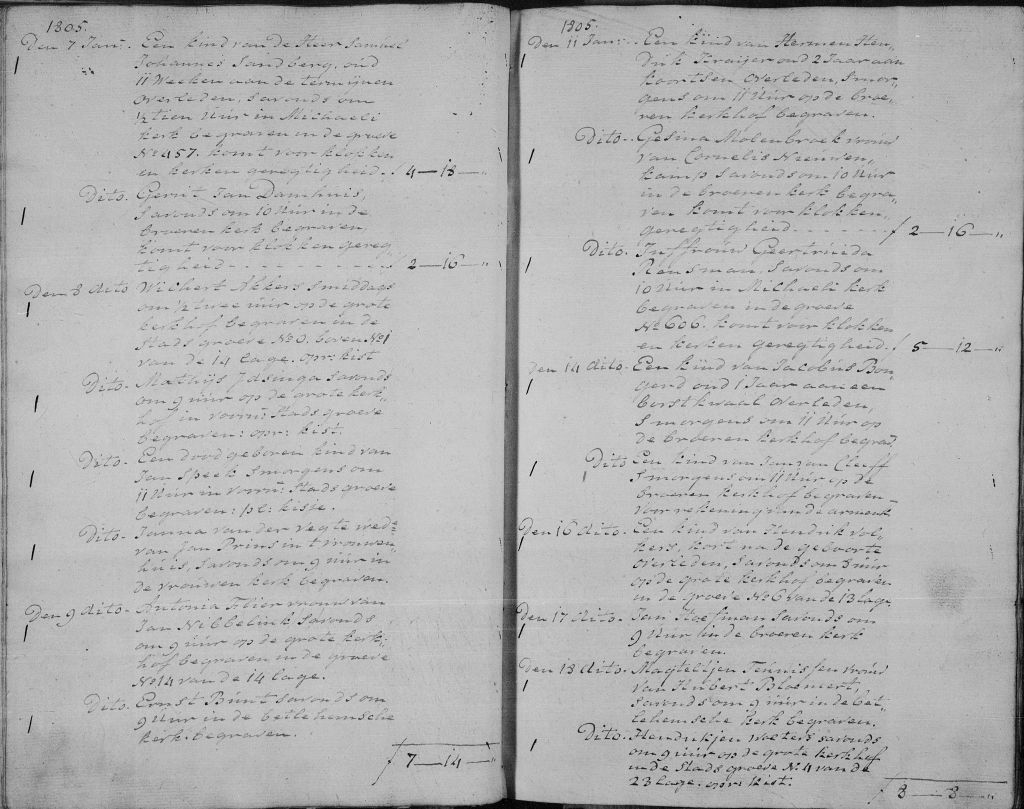 1805.
Den 7 Jan: Een kind van de Heer Samuel
Johannes Sandberg, oud
11 Weeken aan de termijnen
overleden, Savonds om
½ tien Uur in Michaeli
kerk begraven in de groeve
No 457. komt voor klokken
en kerken geregtigheid. f 4—18—"
Dito. Gerrit Jan Damhuis,
Savonds om 10 Uur in de
broeren kerk begraven,
komt voor klokken gereg
tigheid f 2—16—"
Den 8 dito Wichert Akkers Smiddags
om ½ twee uur op de grote
kerkhof begraven in de
Stads groeve No 0. boven No 1
van de 14 lage. opr: kist
Dito. Mathijs Idsinga Savonds
om 9 uur op de grote kerk,
hof in voorn: Stads groeve
begraven: opr: kist.
Dito. Een dood geboren kind van
Jan Speek Smorgens om
11 Uur in voorn: Stads groeve
begraven: pl: kisje.
Dito. Janna van der Vegte wed:
van Jan Prins in t vrouwen,
huis, Savonds om 9 uur in
de vrouwen kerk begraven.
Den 9 dito. Antonia Flier vrouw van
Jan Nibbelink Savonds
om 9 uur op de grote kerk,
hof begraven in de groeve
No 14 van de 14 lage.
Dito. Ernst Bunt Savonds om
9 Uur in de bethlehemsche
kerk. begraven.
f 7—14—
1805.
Den 11 Jan: Een kind van Hermen Hen,
drik Kraijer oud 2 Jaar aan
koortsen overleden, Smor,
gens om 11 Uur op de broe,
ren kerkhof begraven.
Dito. Gesina Molenbroek vrouw
van Cornelis Nieuwen,
kamp Savonds om 10 Uur
in de broeren kerk begra,
ven komt voor klokken,
geregtigheid f 2—16—"
Dito. Juffrouw Geertruida
Reusman, Savonds om
10 Uur in Michaeli kerk
begraven in de groeve
No 606. komt voor klokken
en kerken geregtigheid. f 5—12—"
Den 14 dito. Een kind van Jacobus Bon,
gerd oud 1 Jaar aan een
borst kwaal overleden,
Smorgens om 11 Uur op
de broeren kerkhof begrav,
Dito Een kind van Jan van Cleeff
Smorgens om 11 Uur op de
broeren kerkhof begraven
voor rekening van de armenk
Den 16 dito. Een kind van Hendrik Vol,
kers, kort na de geboorte
overleden, Savonds om 8 uur
op de grote kerkhof begraven
in de groeve No 6 van de 13 lage.
Den 17 dito. Jan Hoefman Savonds om
9 Uur in de broeren kerk
begraven.
Den 18 dito. Magteltjen Teunissen vrouw
van Hubert Bloemert,
Savonds om 9 uur in de bet,
lehemsche kerk begraven.
Dito. Hendrikjen Wolters Savonds
om 9 uur op de grote kerkhof
in de Stads groeve No 4 van de
23 lage: opr: kist.
f 8—8—"